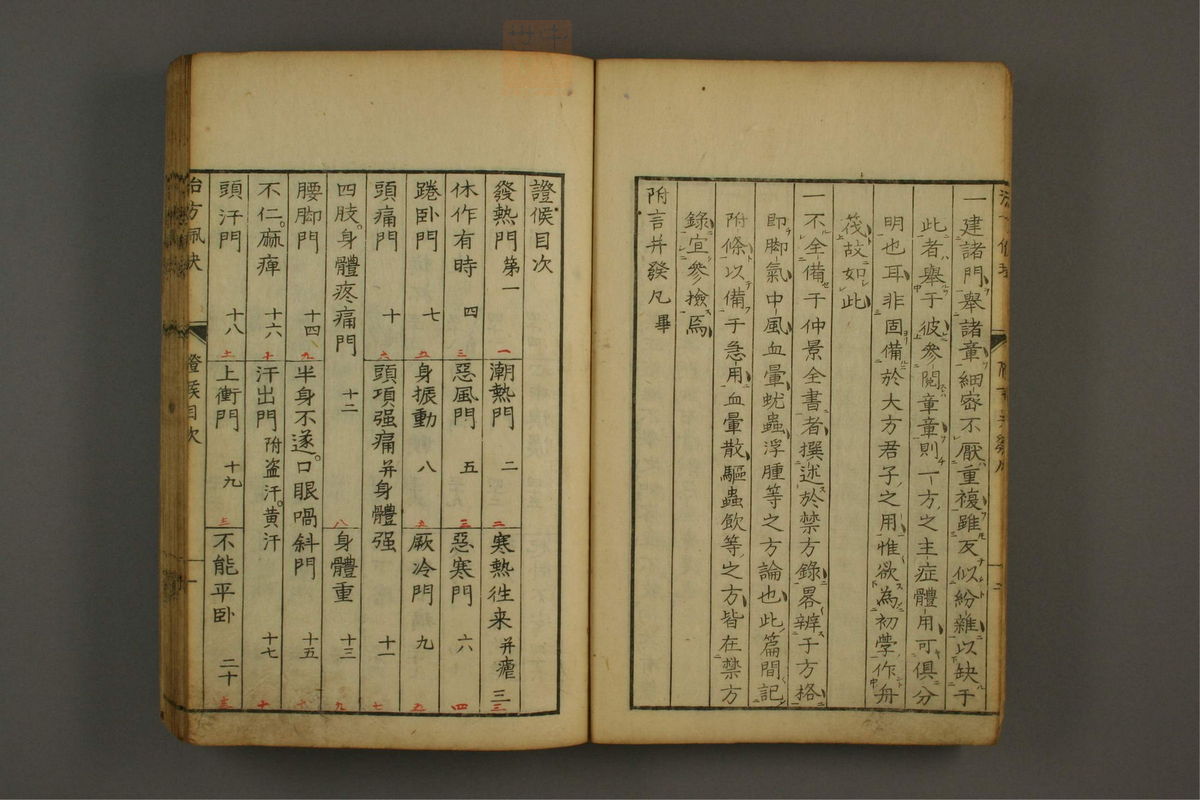 一建諸門舉諸章細密不厭重複雖反似紛雜以缺于
此者舉于彼參閱章章則一方之主症體用可俱分
明也耳非固備於大方君子之用惟欲為初學作舟
筏故如此
一不全備于仲景全書者撰述於禁方錄畧辨于方格
即脚氣中風血暈蚘蟲浮腫等之方論也此篇間記
附條以備于急用血暈散驅蟲飲等之方皆在禁方
錄宜參撿焉
附言并發凡畢
證候目次
發熱門 第一 一 潮熱門 二 二 寒熱徃来 并瘧 三 三
休作有時 四 三 惡風門 五 三 惡寒門 六 四
踡卧門 七 五 身振動 八 五 厥冷門 九 五
頭痛門 十 六 頭項强痛 并身體强 十一 七
四肢。身體疼痛門 十二 八 身體重 十三 九
腰脚門 十四 九 半身不遂。口眼喎斜門 十五 十
不仁。麻痺 十六 十 汗出門 附盗汗。黄汗 十七 十
頭汗門 十八 土 上衝門 十九 三 不能平卧 二十
治方夙訣 證候目次 一